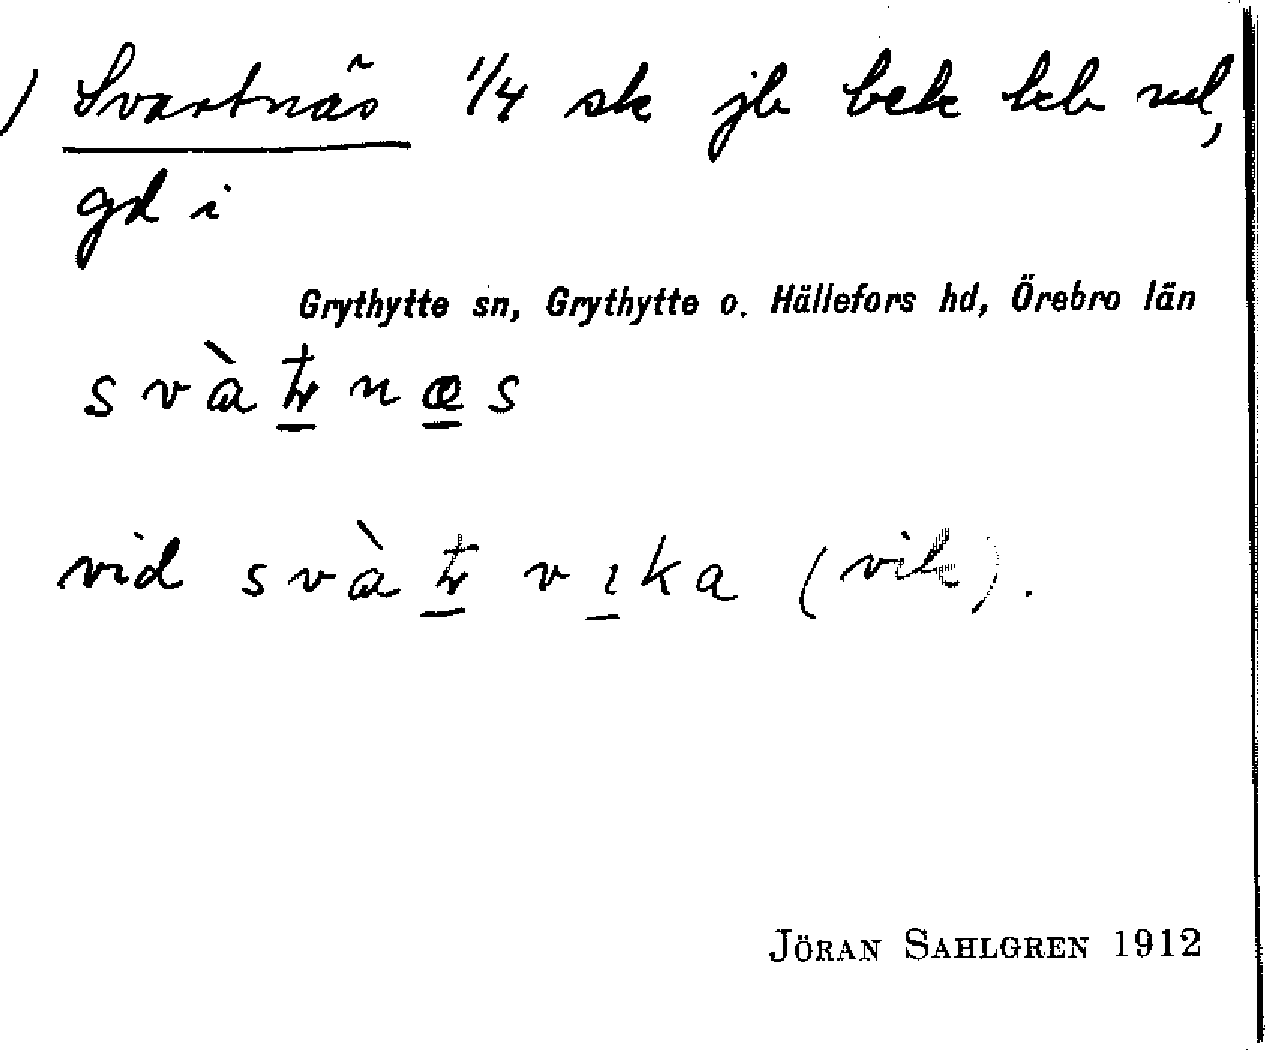 ) Svartnäs 1/4 sk jb bek
gd i
Grythytte sn, Grythytte o. Hällefors hd, Örebro län
s v à n æ s
vid s v à v ı k a (vik).
JÖRAN SAHLGREN 1912